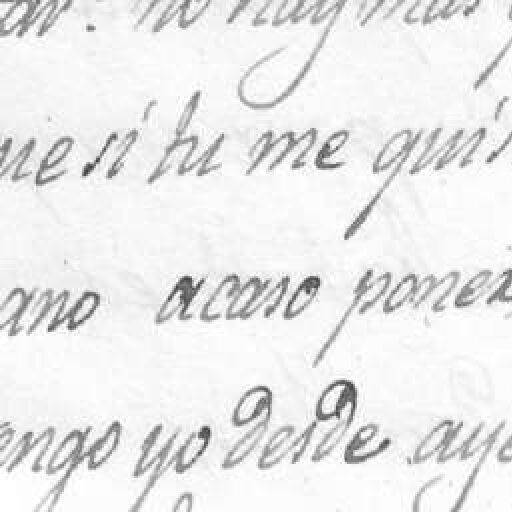 no hay mas
ue si tu me quis
ano acaso ponex
engo yo desde aye